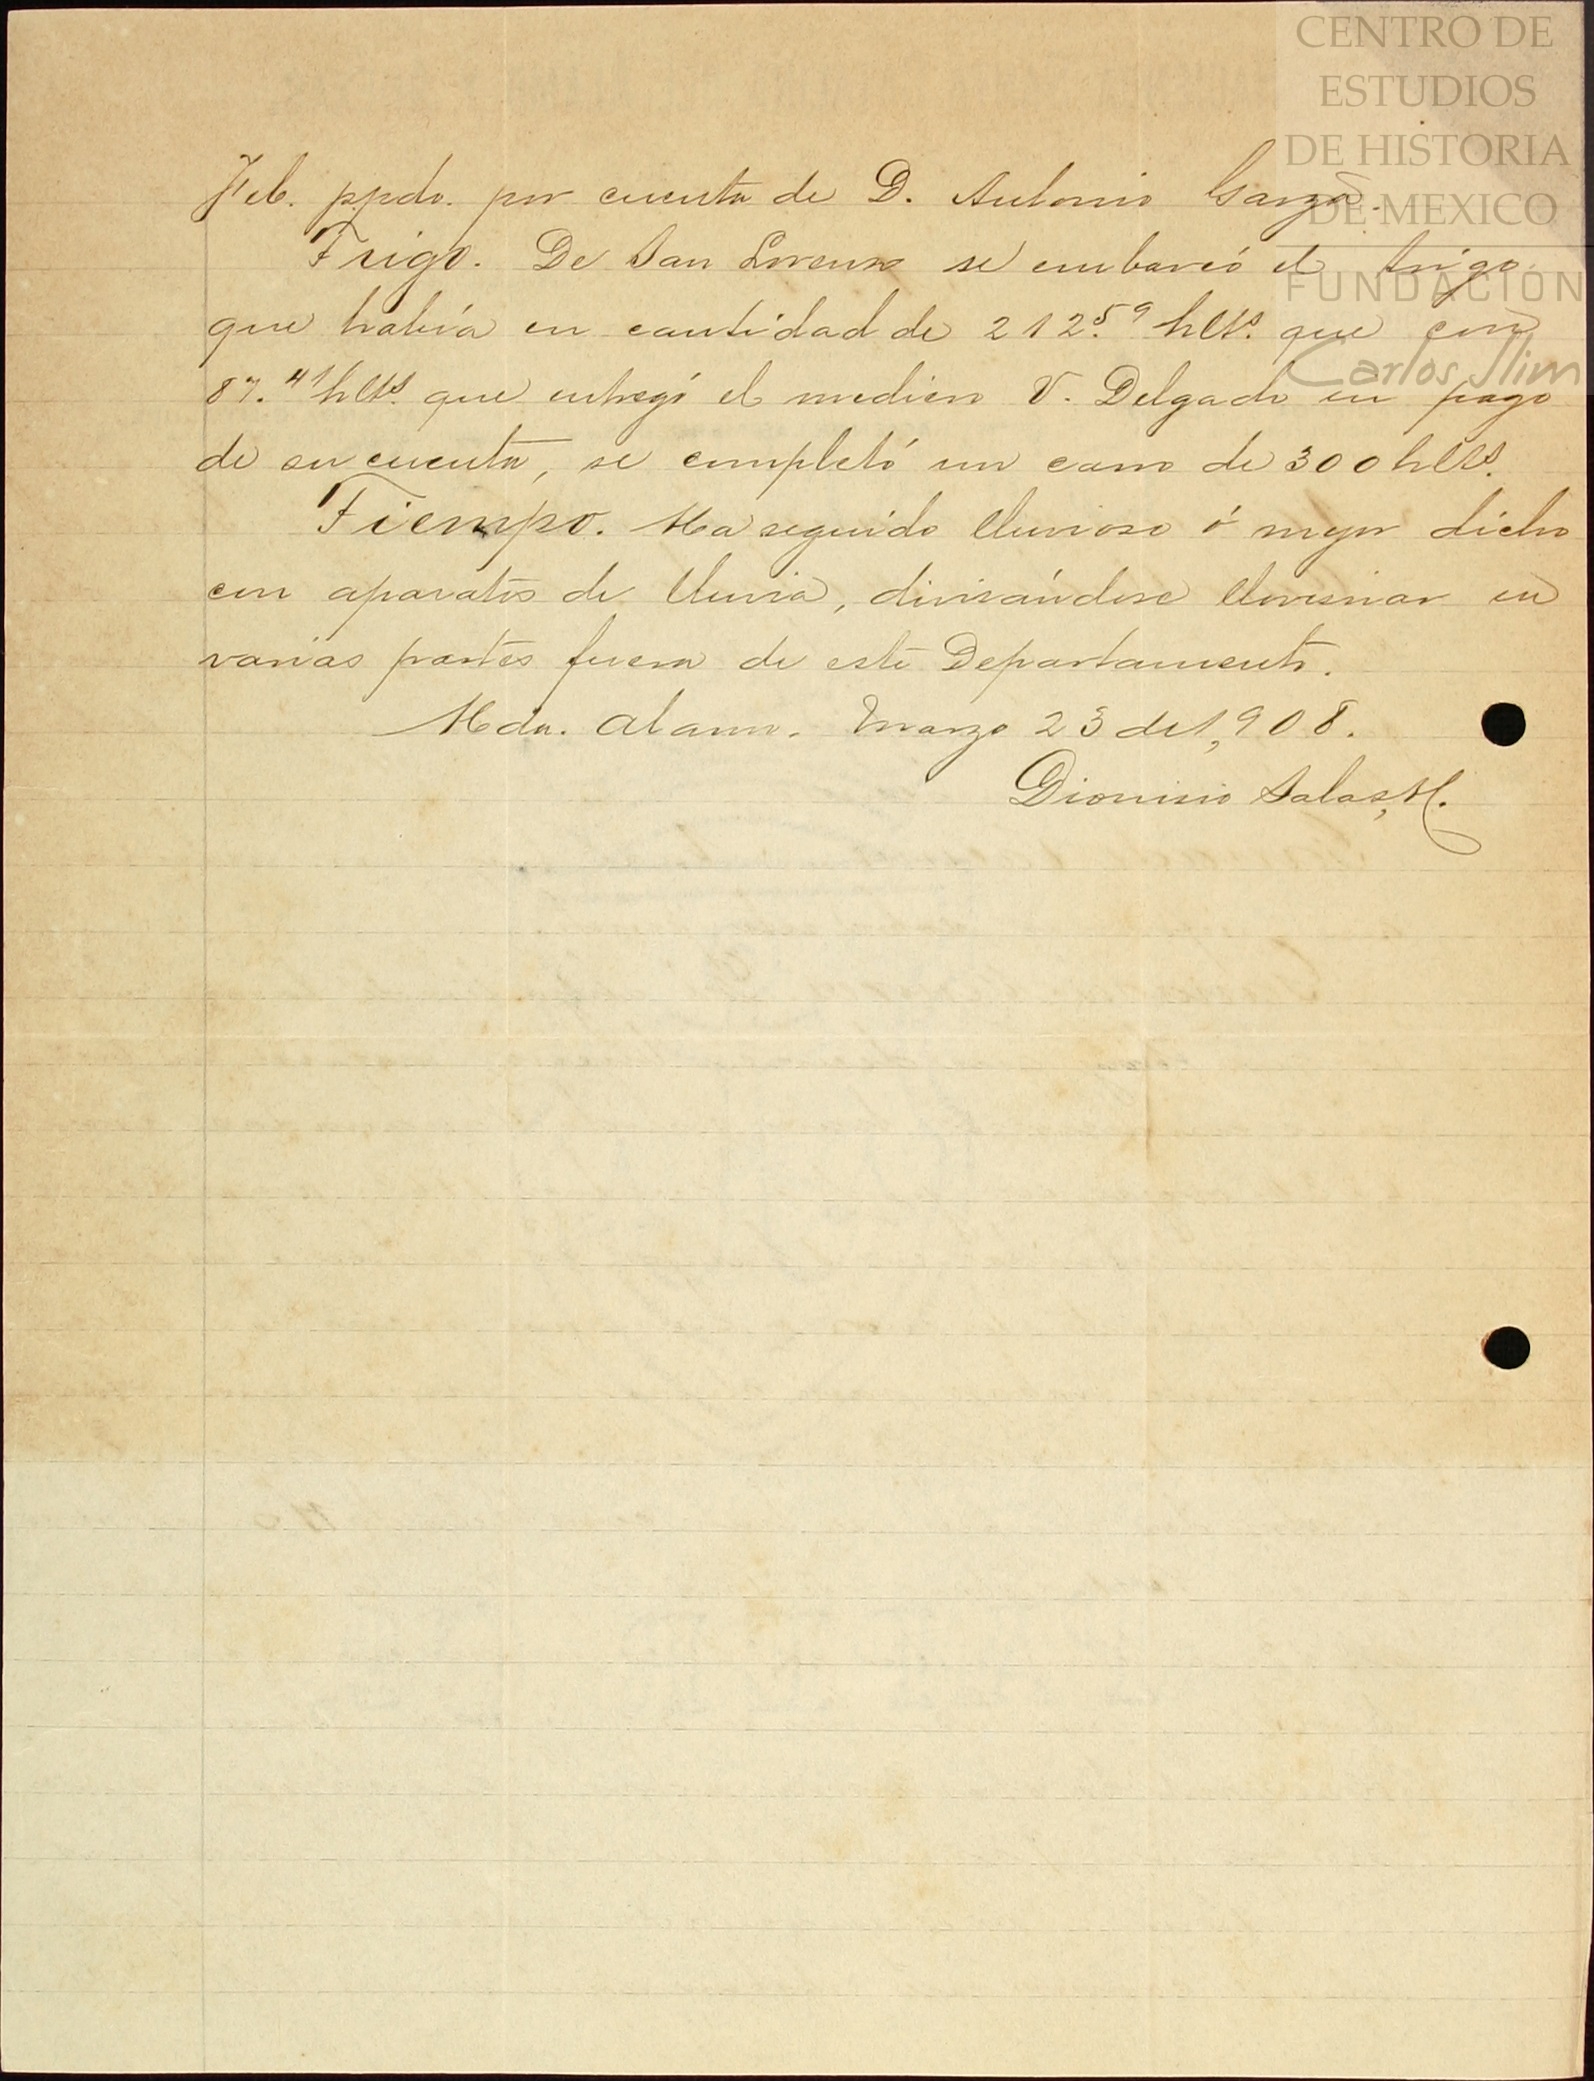 CENTRO DE
ESTUDIOS
DE HISTORIA
DE MEXICO
FUNDACIÓN
Carlos Slim
Feb. ppdo. por cuenta de D. Antonio Garza.
Trigo. De San Lorenzo se embarcó el trigo
que había en cantidad de 212.59 hlts. que con
87.41 hlts. que entregó el mediero V. Delgado en pago
de su cuenta, se completó un carro de 300 hlts.
Tiempo. Ha seguido lluvioso ó mejor dicho
con aparatos de lluvia, divisándose lloviznar en
varias partes fuera de este Departamento.
Hda. Alamo. Marzo 23 de 1,908.
Dionisio Salas, H.